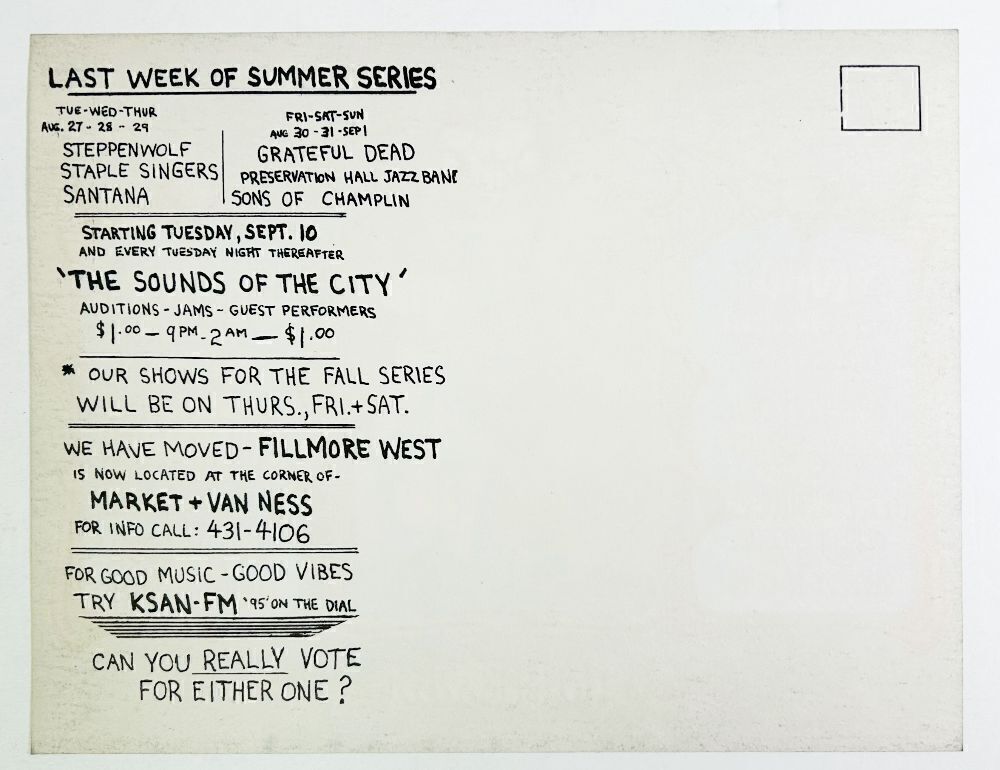 LAST WEEK OF SUMMER SERIES
TUE-WED-THUR
AUG. 27 - 28 - 29
STEPPENWOLF
STAPLE SINGERS
SANTANA
FRI-SAT-SUN
AUG 30 - 31 - SEP 1
GRATEFUL DEAD
PRESERVATION HALL JAZZ BAND
SONS OF CHAMPLIN
STARTING TUESDAY, SEPT. 10
AND EVERY TUESDAY NIGHT THEREAFTER
'THE SOUNDS OF THE CITY'
AUDITIONS - JAMS - GUEST PERFORMERS
$1.00 - 9PM - 2AM - $1.00
* OUR SHOWS FOR THE FALL SERIES
WILL BE ON THURS., FRI. + SAT.
WE HAVE MOVED - FILLMORE WEST
IS NOW LOCATED AT THE CORNER OF -
MARKET + VAN NESS
FOR INFO CALL: 431-4106
FOR GOOD MUSIC - GOOD VIBES
TRY KSAN-FM '95' ON THE DIAL
CAN YOU REALLY VOTE
FOR EITHER ONE?